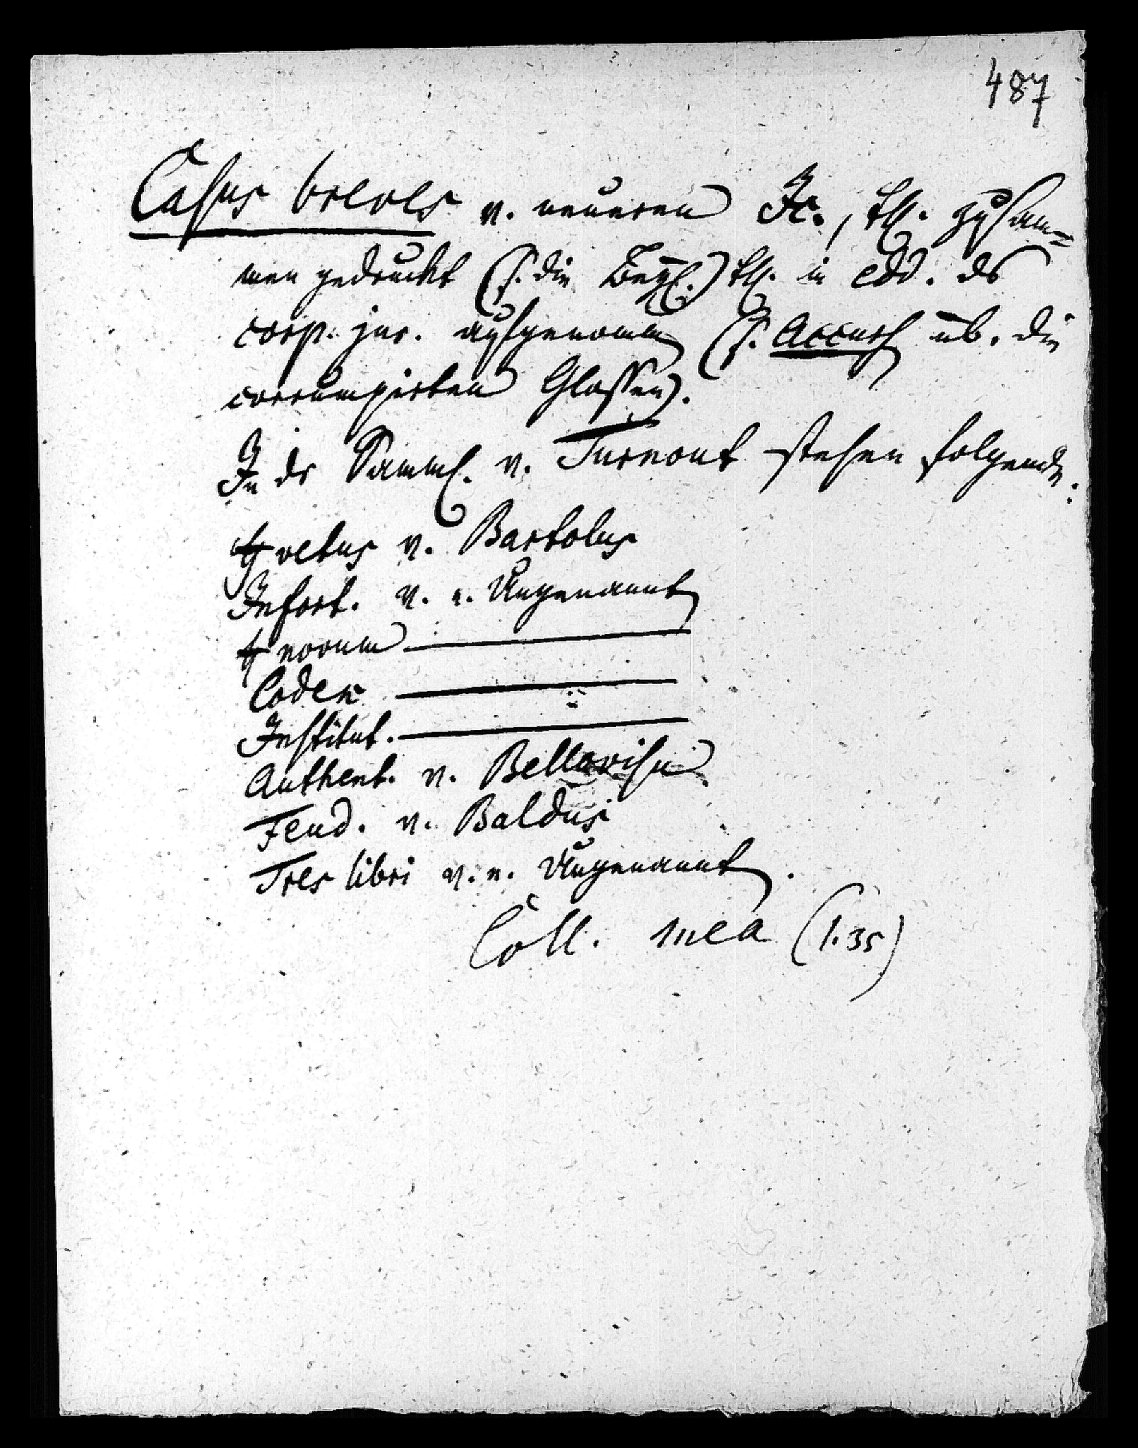 487
Casus breves v. neueren Jc., tħl. zusam=
men gedruckt (s. die Beyl.) tħl. in edd. ds
corp. jur. aufgenomm (s. Accurs üb. die
corrumpirten Glossen).
In dr Samml. v. Turnout stehen folgende:
ff vetus v. Bartolus
Infort. v. e. Ungenannt
ff novum
Codex
Institut.
Authent. v. Bellovisu
Feud. v. Baldus
Tres libri v. e. Ungenannt.
Coll. mea (1.35)